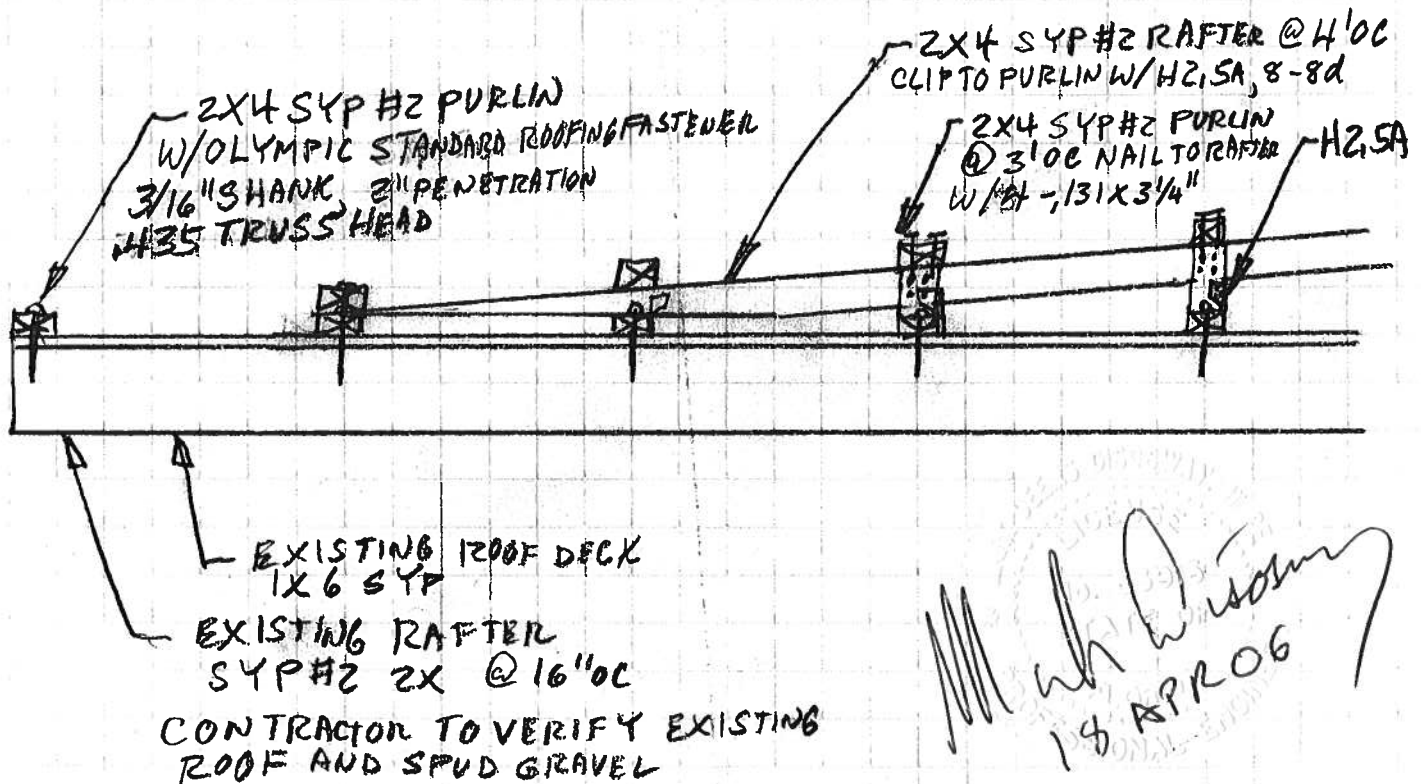 2X4 SYP #2 PURLIN
W/OLYMPIC STANDARD ROOFING FASTENER
3/16" SHANK, 2" PENETRATION
.435 TRUSS HEAD
2X4 SYP #2 RAFTER @ 4'OC
CLIP TO PURLIN W/H2.5A, 8-8d
2X4 SYP #2 PURLIN
@ 3'OC NAIL TO RAFTER
W/ -.131 X 3 1/4"
H2.5A
EXISTING ROOF DECK
1X6 SYP
EXISTING RAFTER
SYP #2 2X @ 16"OC
CONTRACTOR TO VERIFY EXISTING
ROOF AND SPUD GRAVEL
18 APR 06